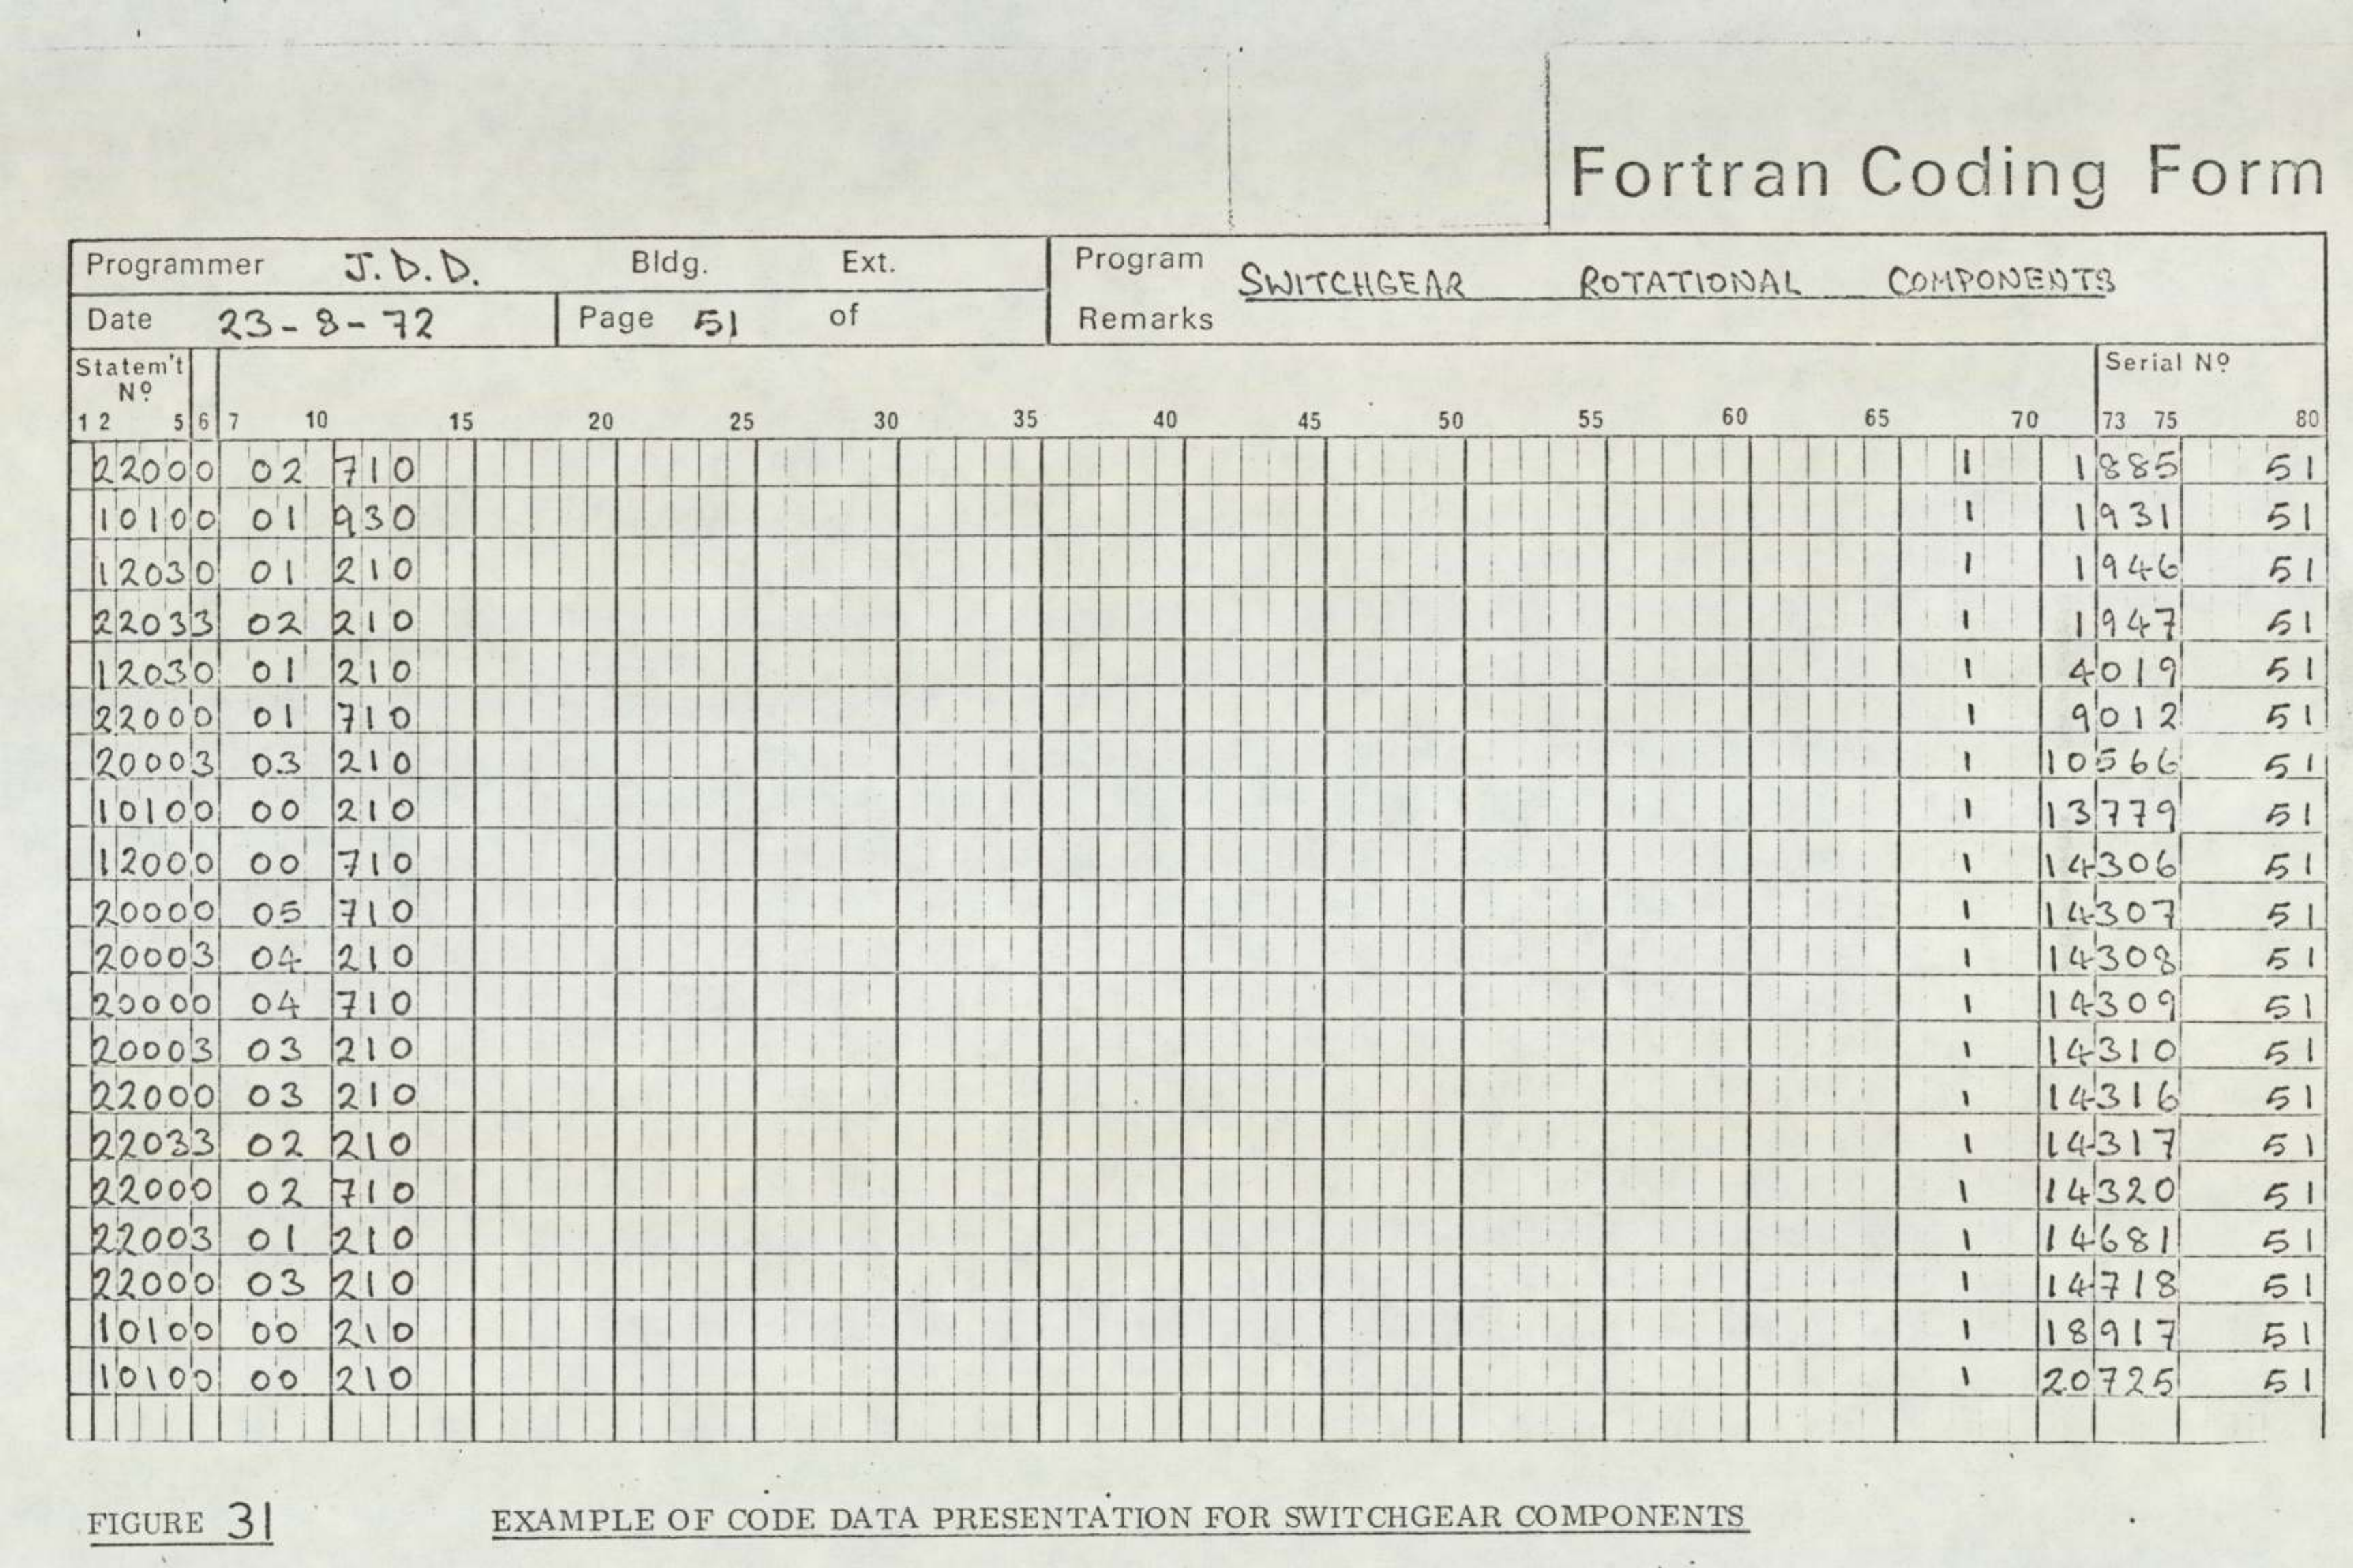 Fortran Coding Form
Programmer J.D.D. Bldg. Ext. Program SWITCHGEAR ROTATIONAL COMPONENTS
Date 23-8-72 Page 51 of Remarks
Statem't Serial Nº
Nº
1 2 5 6 7 10 15 20 25 30 35 40 45 50 55 60 65 70 73 75 80
22000 02 710 1 1885 51
10100 01 930 1 1931 51
12030 01 210 1 1946 51
22033 02 210 1 1947 51
12030 01 210 1 4019 51
22000 01 710 1 9012 51
20003 03 210 1 10566 51
10100 00 210 1 13779 51
12000 00 710 1 14306 51
20000 05 710 1 14307 51
20003 04 210 1 14308 51
20000 04 710 1 14309 51
20003 03 210 1 14310 51
22000 03 210 1 14316 51
22033 02 210 1 14317 51
22000 02 710 1 14320 51
22003 01 210 1 14681 51
22000 03 210 1 14718 51
10100 00 210 1 18917 51
10100 00 210 1 20725 51
FIGURE 31 EXAMPLE OF CODE DATA PRESENTATION FOR SWITCHGEAR COMPONENTS